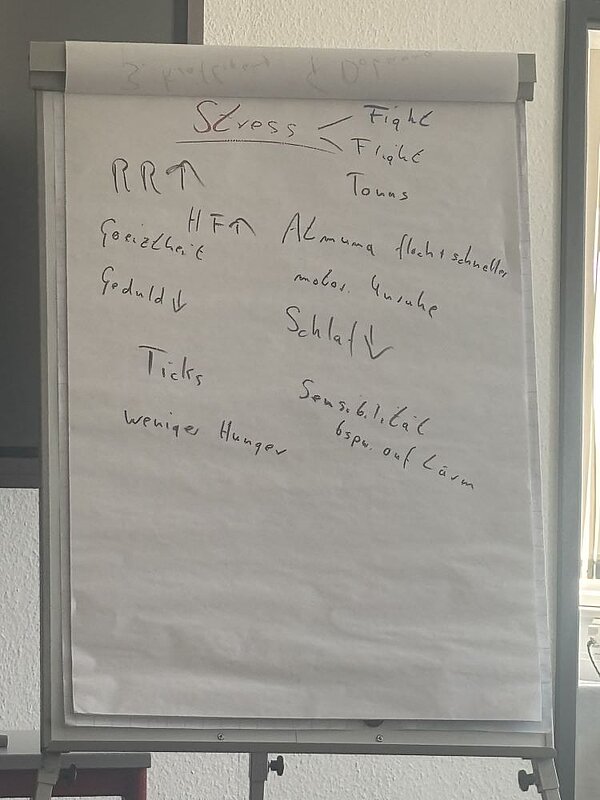 Stress
Fight
Flight
Tonus
RR↑
HF↑
Gereiztheit
Atmung flach + schneller
Geduld↓
motor. Unruhe
Schlaf↓
Ticks
Sensibilität
bspw. auf Lärm
weniger Hunger